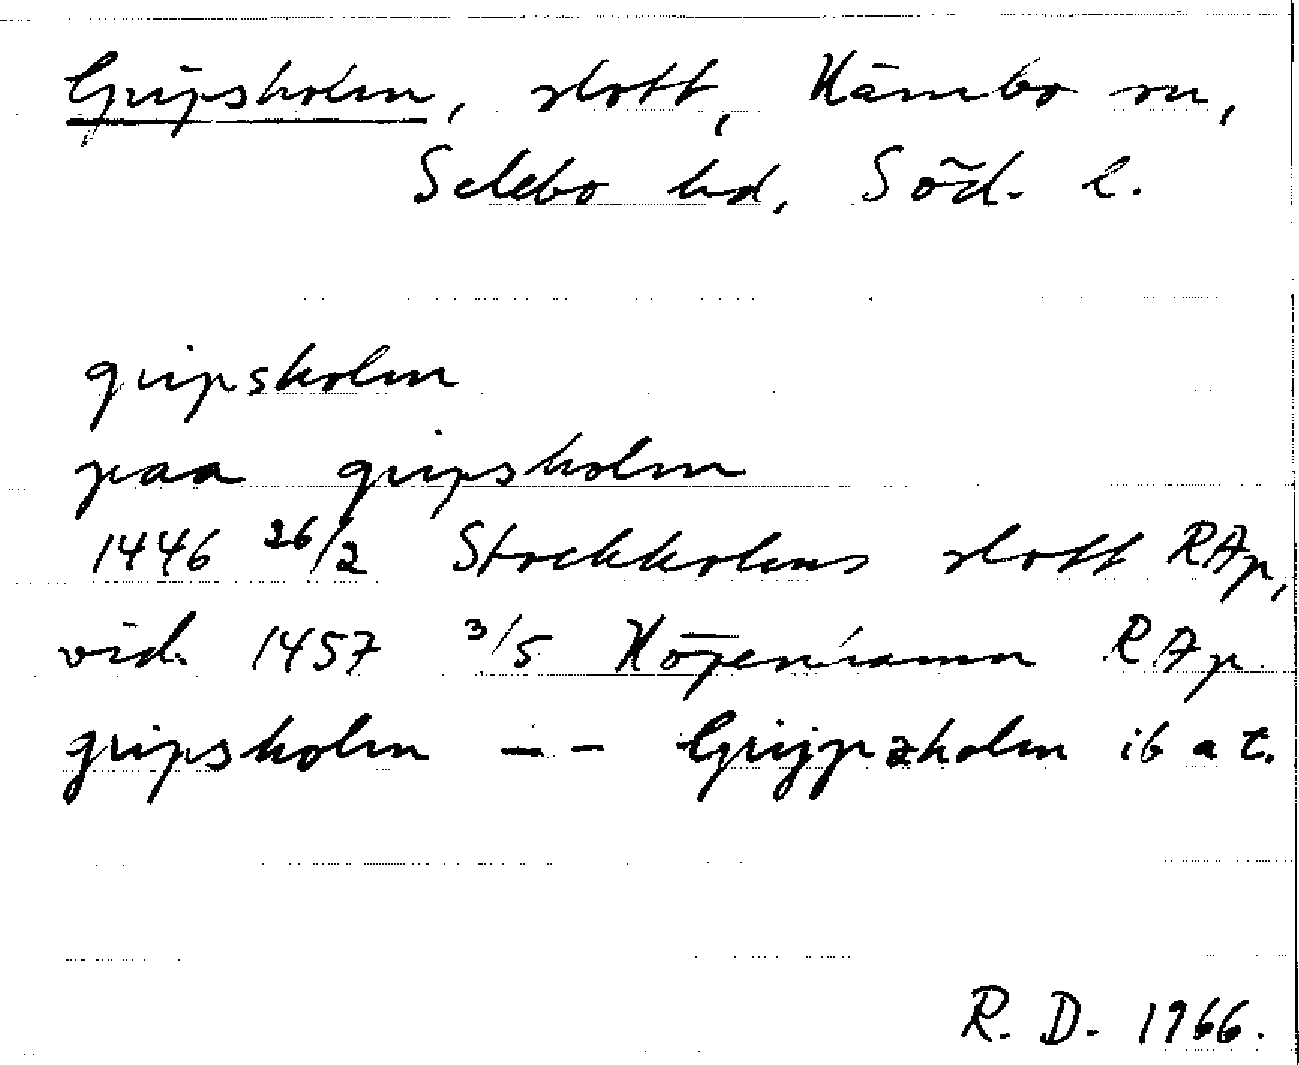 Gripsholm, slott, Kärnbo sn,
Selebo hd, Söd. l.
gripsholm
paa gripsholm
1446 26/2 Stockholms slott RAp,
vid. 1457 3/5 Köpenhamn RAp
gripsholm -- Grijpzholm ib a t.
R. D. 1966.